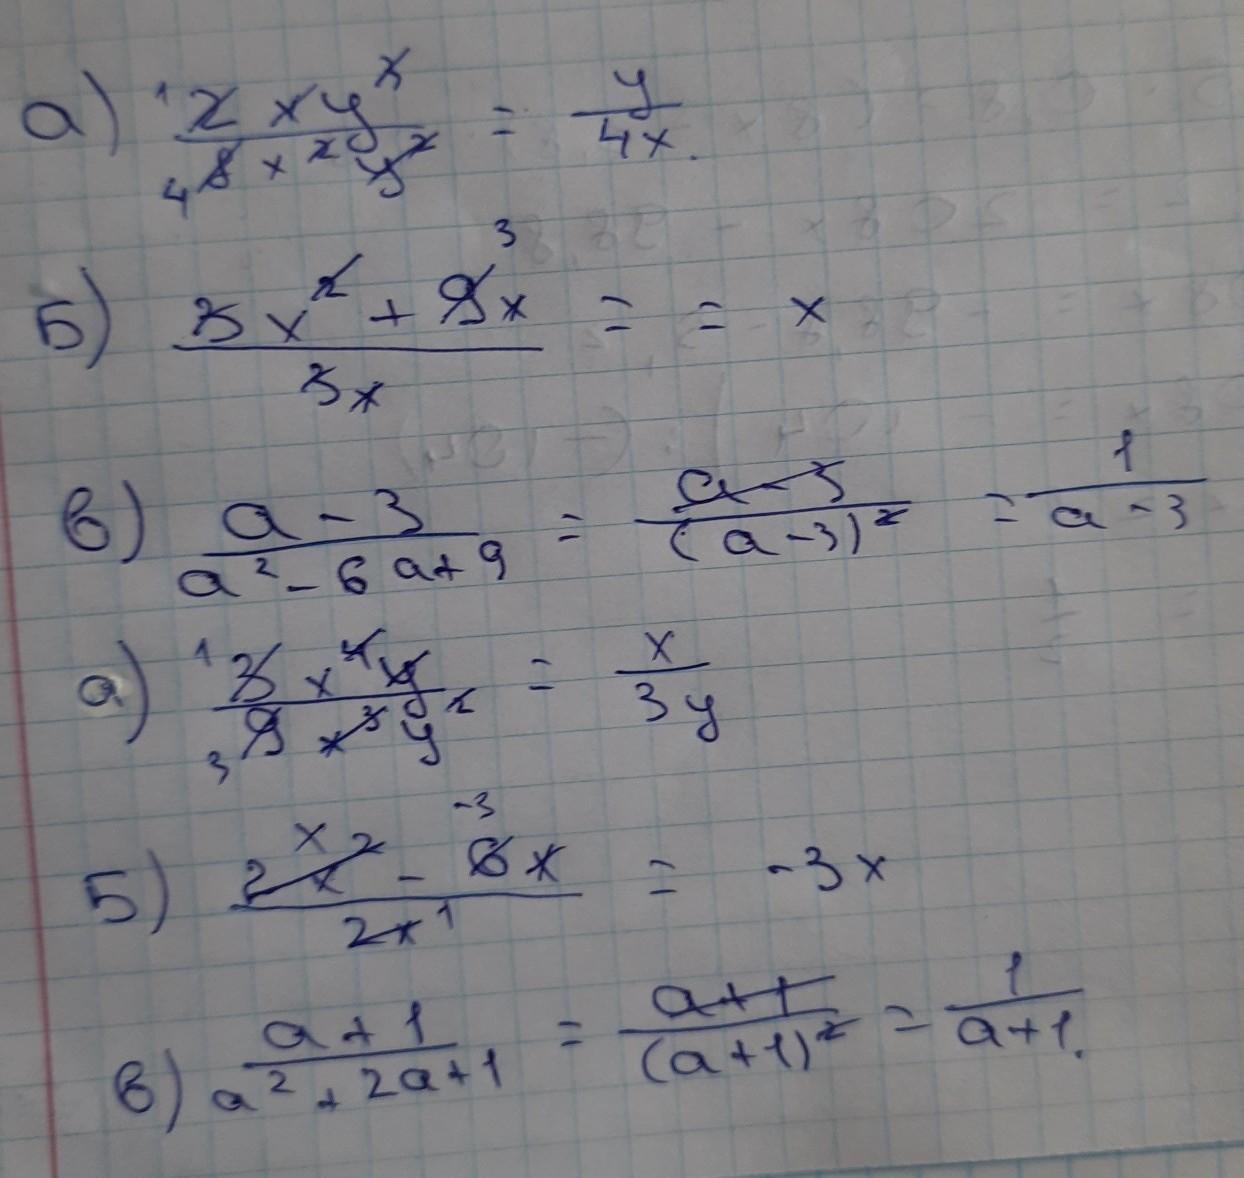 а) ¹2xy³ / ₄8x²y² = y / 4x.
Б) 3x² + 9³x / 3x = = x
в) a - 3 / a² - 6a + 9 = a - 3 / (a - 3)² = 1 / a - 3
а) ¹3x⁴y / ₃9x³y² = x / 3y
Б) 2x² - 6x / 2x¹ = -3x
в) a + 1 / a² + 2a + 1 = a + 1 / (a + 1)² = 1 / a + 1.